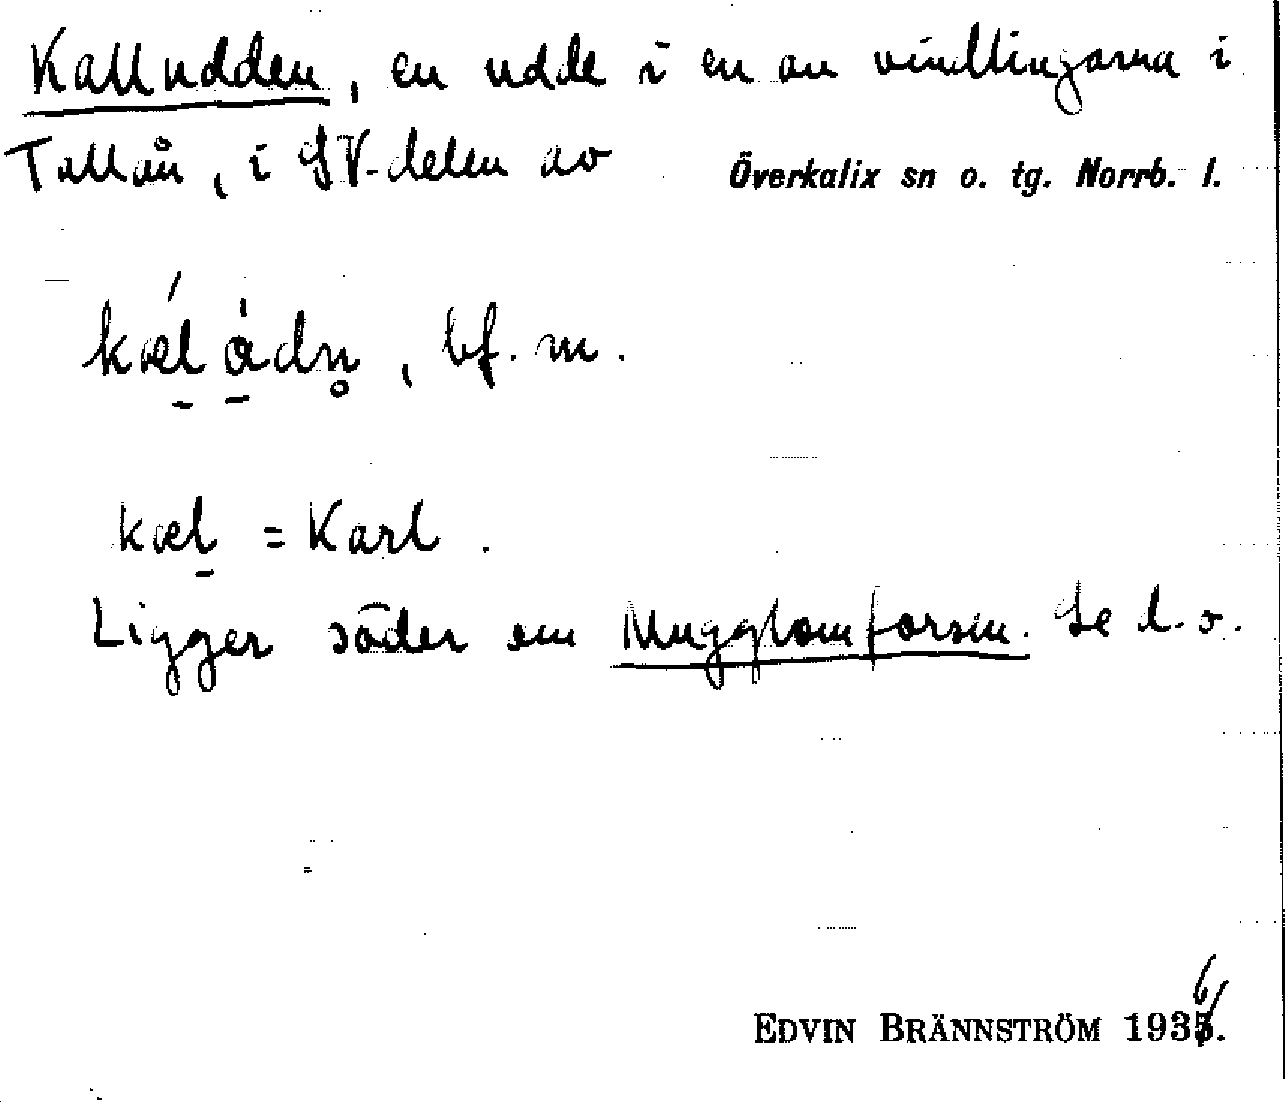 Kalludden, en udde i en av vindlingarna i
Tallån, i SV-delen av Överkalix sn o. tg. Norrb. l.
kæl ådn̥, bf. m.
kæl = Karl.
Ligger söder om Mugglomforsen. Se d. o.
EDVIN BRÄNNSTRÖM 1936.